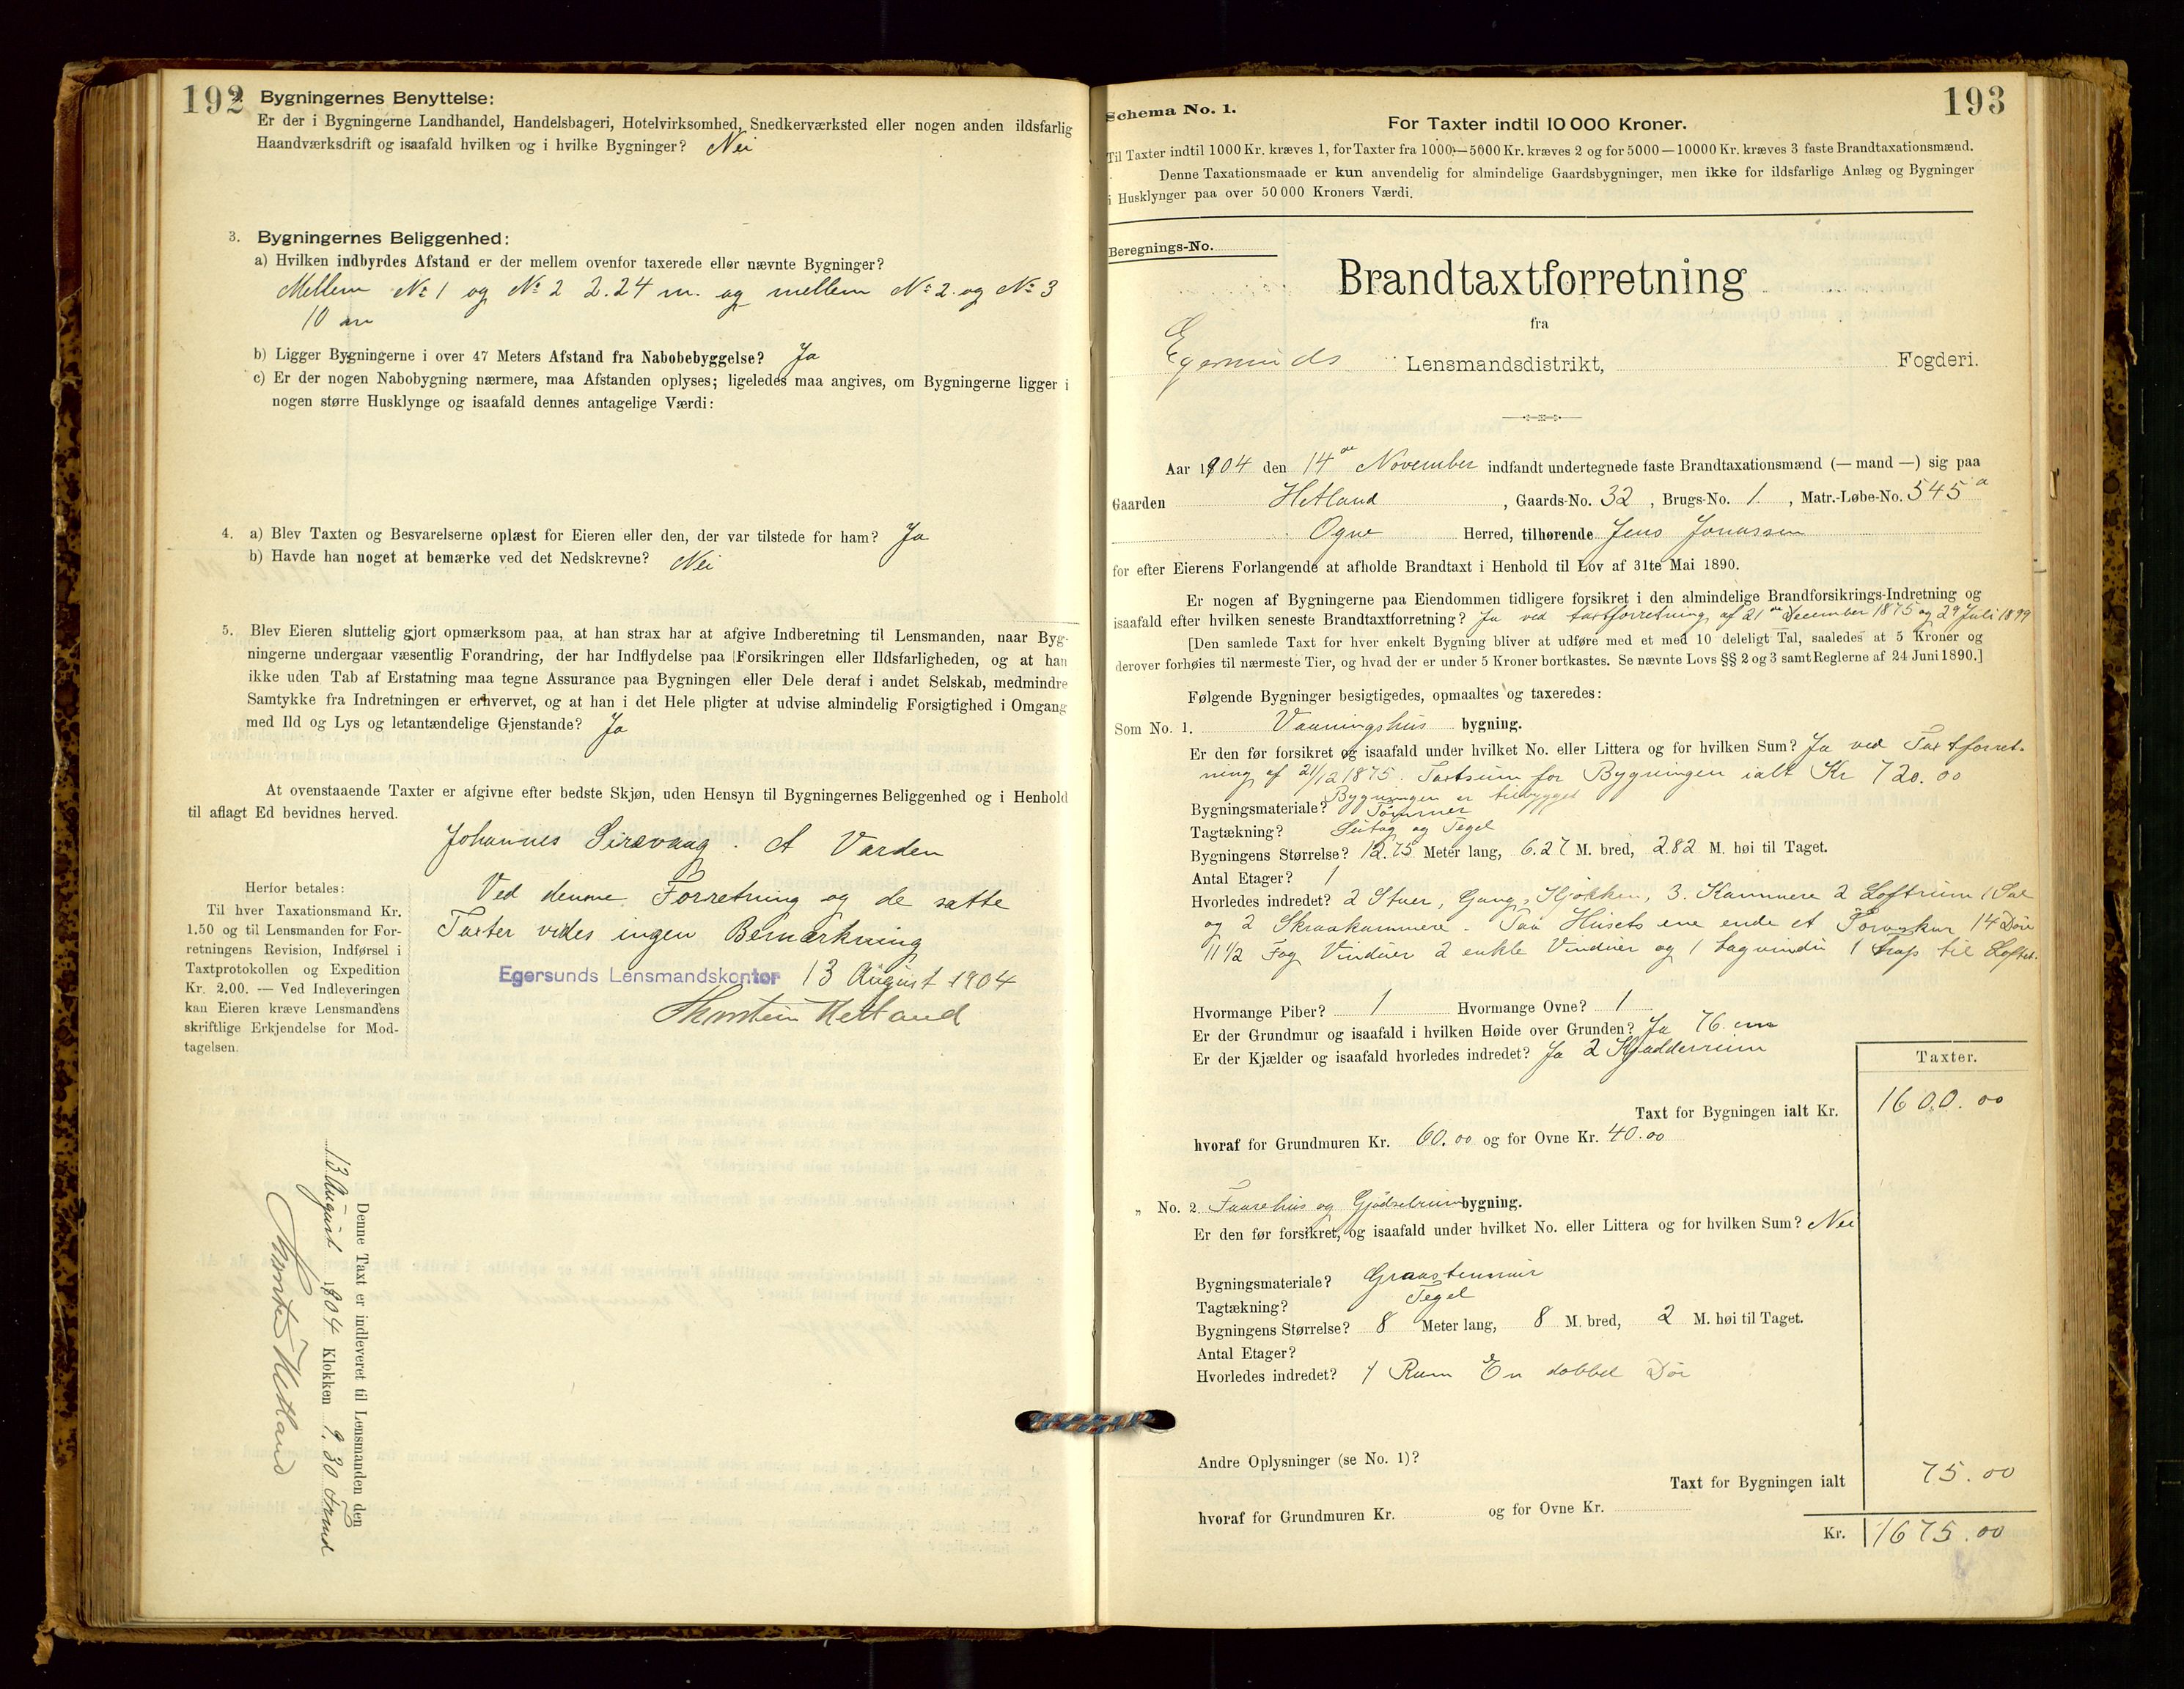 192
Bygningernes Benyttelse:
Er der i Bygningerne Landhandel, Handelsbageri, Hotelvirksomhed, Snedkerværksted eller nogen anden ildsfarlig
Haandværksdrift og isaafald hvilken og i hvilke Bygninger? Nei
3. Bygningernes Beliggenhed:
a) Hvilken indbyrdes Afstand er der mellem ovenfor taxerede eller nævnte Bygninger?
Mellem No 1 og No 2 2.24 m. og mellem No 2. og No 3
10 m
b) Ligger Bygningerne i over 47 Meters Afstand fra Nabobebyggelse? Ja
c) Er der nogen Nabobygning nærmere, maa Afstanden oplyses; ligeledes maa angives, om Bygningerne ligger i
nogen større Husklynge og isaafald dennes antagelige Værdi:
4. a) Blev Taxten og Besvarelserne oplæst for Eieren eller den, der var tilstede for ham? Ja
b) Havde han noget at bemærke ved det Nedskrevne? Nei
5. Blev Eieren sluttelig gjort opmærksom paa, at han strax har at afgive Indberetning til Lensmanden, naar Byg-
ningerne undergaar væsentlig Forandring, der har Indflydelse paa Forsikringen eller Ildsfarligheden, og at han
ikke uden Tab af Erstatning maa tegne Assurance paa Bygningen eller Dele deraf i andet Selskab, medmindre
Samtykke fra Indretningen er erhvervet, og at han i det Hele pligter at udvise almindelig Forsigtighed i Omgang
med Ild og Lys og letantændelige Gjenstande? Ja
At ovenstaaende Taxter er afgivne efter bedste Skjøn, uden Hensyn til Bygningernes Beliggenhed og i Henhold
til aflagt Ed bevidnes herved.
Johannes Sirevaag. A Varden
Ved denne Forretning og de satte
Taxter vides ingen Bemærkning
Egersunds Lensmandskontor 13 August 1904
Thorstein Hetland
Herfor betales:
Til hver Taxationsmand Kr.
1.50 og til Lensmanden for For-
retningens Revision, Indførsel i
Taxtprotokollen og Expedition
Kr. 2.00. — Ved Indleveringen
kan Eieren kræve Lensmandens
skriftlige Erkjendelse for Mod-
tagelsen.
Denne Taxt er indleveret til Lensmanden den
13 August 1904 Klokken 9.30 Formd
Thorstein Hetland
193
Schema No. 1.
For Taxter indtil 10 000 Kroner.
Til Taxter indtil 1000 Kr. kræves 1, for Taxter fra 1000—5000 Kr. kræves 2 og for 5000—10000 Kr. kræves 3 faste Brandtaxationsmænd.
Denne Taxationsmaade er kun anvendelig for almindelige Gaardsbygninger, men ikke for ildsfarlige Anlæg og Bygninger
i Husklynger paa over 50 000 Kroners Værdi.
Beregnings-No.
Brandtaxtforretning
fra
Egersunds Lensmandsdistrikt, Fogderi.
Aar 1904 den 14de November indfandt undertegnede faste Brandtaxationsmænd (— mand —) sig paa
Gaarden Hetland, Gaards-No. 32, Brugs-No. 1, Matr.-Løbe-No. 545 a
Ogne Herred, tilhørende Jens Jonassen
for efter Eierens Forlangende at afholde Brandtaxt i Henhold til Lov af 31te Mai 1890.
Er nogen af Bygningerne paa Eiendommen tidligere forsikret i den almindelige Brandforsikrings-Indretning og
isaafald efter hvilken seneste Brandtaxtforretning? Ja ved taxtforretning af 21de December 1875 og 29 Juli 1899
[Den samlede Taxt for hver enkelt Bygning bliver at udføre med et med 10 deleligt Tal, saaledes at 5 Kroner og
derover forhøies til nærmeste Tier, og hvad der er under 5 Kroner bortkastes. Se nævnte Lovs §§ 2 og 3 samt Reglerne af 24 Juni 1890.]
Følgende Bygninger besigtigedes, opmaaltes og taxeredes:
Som No. 1. Vaaningshus bygning.
Er den før forsikret og isaafald under hvilket No. eller Littera og for hvilken Sum? Ja ved Taxtforret-
ning af 21/12 1875. Taxtsum for Bygningen ialt Kr 720.00
Bygningen er tilbygget
Bygningsmateriale? Tømmer
Tagtækning? og Tegel
Bygningens Størrelse? 12.75 Meter lang, 6.27 M. bred, 2.82 M. høi til Taget.
Antal Etager? 1
Hvorledes indredet? 2 Stuer, Gang, Kjøkken, 3. Kammere 2 Loftrum 1 Sal
og 2 Skraakammere. Paa Husets ene ende et Torvskur 14 Døre
11 1/2 Fag Vinduer 2 enkle Vinduer og 1 tagvindu 1 trap til Loftet.
Hvormange Piber? 1 Hvormange Ovne? 1
Er der Grundmur og isaafald i hvilken Høide over Grunden? Ja 76. cm
Er der Kjælder og isaafald hvorledes indredet? Ja 2 Kjælderrum
Taxter.
Taxt for Bygningen ialt Kr. 1600.00
hvoraf for Grundmuren Kr. 60.00 og for Ovne Kr. 40.00
„ No. 2 Faarehus og Gjødselrum bygning.
Er den før forsikret, og isaafald under hvilket No. eller Littera og for hvilken Sum? Nei
Bygningsmateriale? Graastenmur
Tagtækning? Tegel
Bygningens Størrelse? 8 Meter lang, 8 M. bred, 2 M. høi til Taget.
Antal Etager?
Hvorledes indredet? 1 Rum En dobbel Dør
Andre Oplysninger (se No. 1)?
Taxt for Bygningen ialt 75.00
hvoraf for Grundmuren Kr. og for Ovne Kr.
Kr. 1675.00